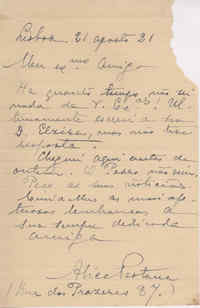 Lisboa 21 agosto 21
Meu exmo amigo
Ha quanto tempo não sei
nada de V. Exas! Ul-
timamente escrevi á sra
D. Elzira, mas não tive
resposta!
Cheguei aqui antes de
ontem. O Pedro não veiu.
Peço as suas noticias.
Envia-lhes as mais afe-
tuosas lembranças a
sua sempre dedicada
amiga
Alice Pestana
(Rua dos Prazeres 27.)